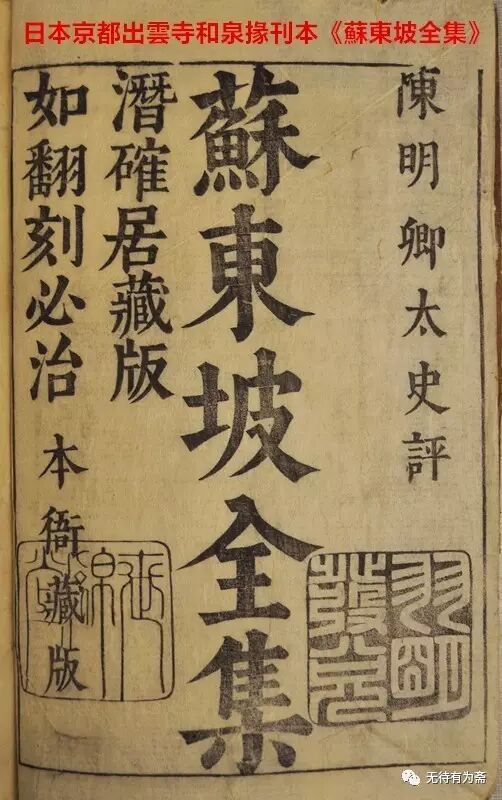 日本京都出雲寺和泉掾刊本《蘇東坡全集》
陳明卿太史評
蘇東坡全集
潛確居藏版
如翻刻必治
本衙藏版
无待有为斋